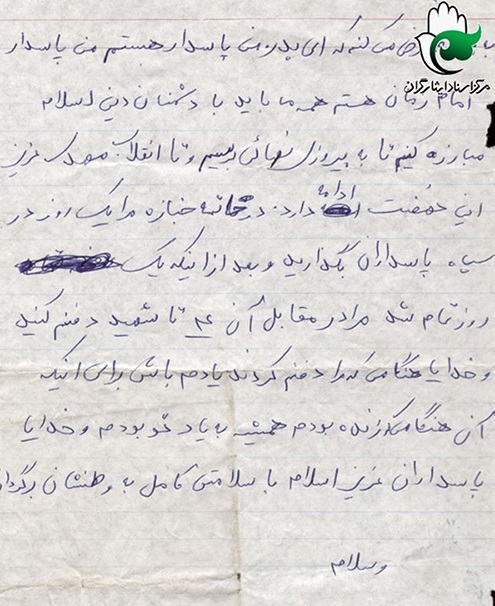 مرکز اسناد ایثارگران
می کنم که ای پدر من پاسدار هستم من پاسدار
امام زمان هستم همه ما باید با دشمنان دین اسلام
مبارزه کنیم تا به پیروزی نهائی برسیم و تا انقلاب مهدی عزیز
این نهضت ادامه دارد. در خاتمه جنازه مرا یک روز در
سپاه پاسداران بگذارید و بعد از اینکه یک
روز تمام شد مرا در مقابل آن تا شهید دفنم کنید
و خدایا هنگامی که مرا دفنم کردند یادم باش برای اینکه
آن هنگام که زنده بودم همیشه به یاد تو بودم و خدایا
پاسداران عزیز اسلام با سلامتی کامل به وطنشان برگردان
وسلام